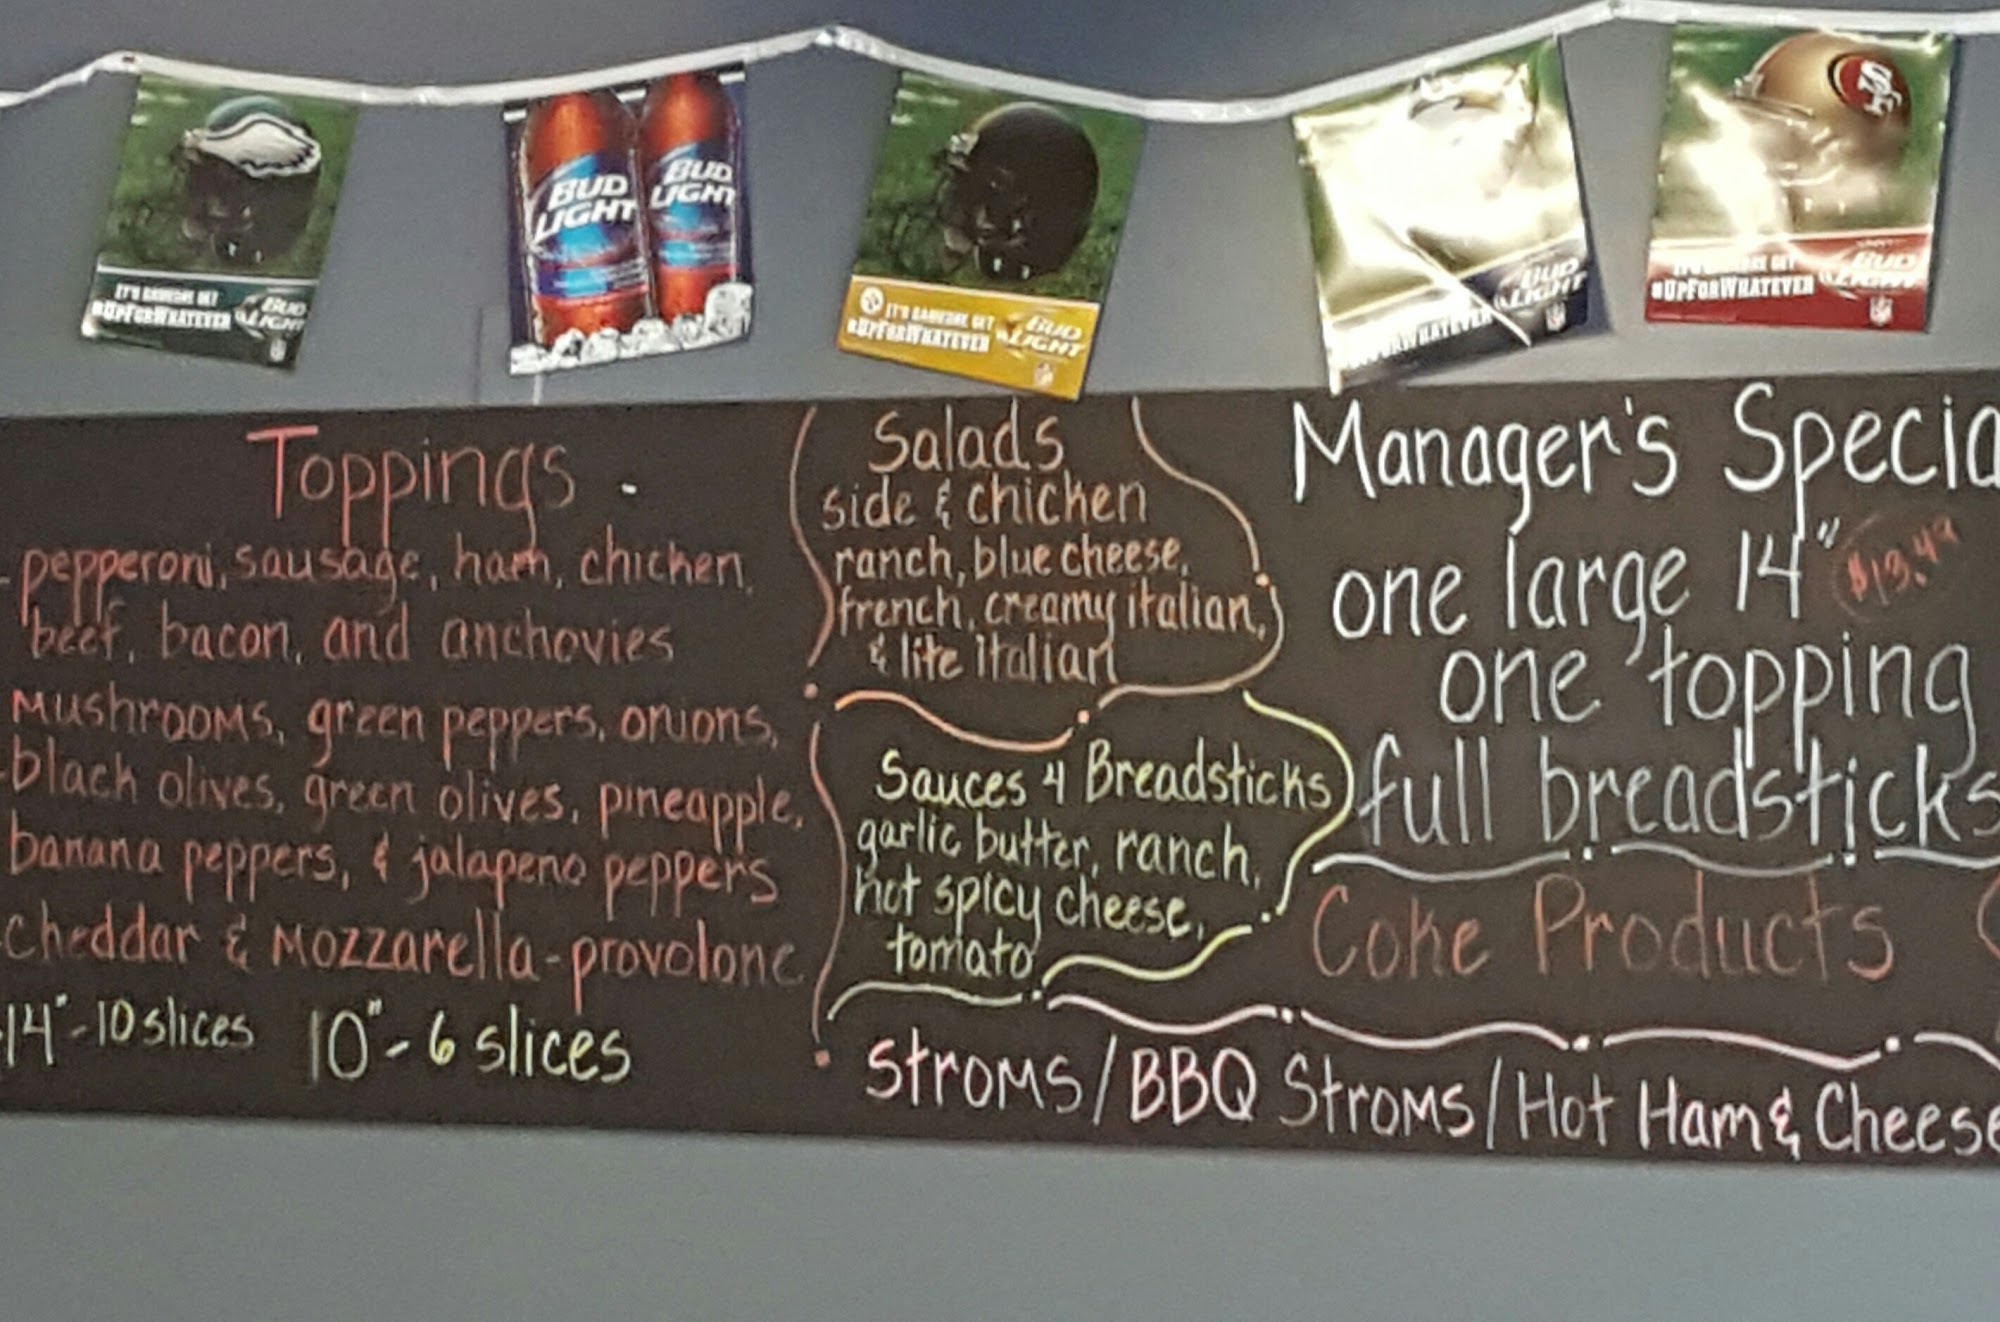 IT'S GAMEONE GET
#UPFORWHATEVER
BUD
LIGHT
NFL
BUD
LIGHT
BUD
LIGHT
#UPFORWHATEVER
BUD
LIGHT
NFL
BUD
LIGHT
NFL
SF
#UPFORWHATEVER
BUD
LIGHT
NFL
Toppings
- pepperoni, sausage, ham, chicken,
beef, bacon, and anchovies
Mushrooms, green peppers, onions,
-black olives, green olives, pineapple,
banana peppers, & jalapeno peppers
-cheddar & Mozzarella-provolone
-14"-10 slices 10"- 6 slices
Salads
side & chicken
ranch, blue cheese,
french, creamy italian,
& lite italian
Sauces 4 Breadsticks
garlic butter, ranch,
hot spicy cheese,
tomato
Manager's Specia
one large 14" $13.49
one topping
full breadsticks
Coke Products
Stroms/BBQ Stroms/Hot Ham & Cheese